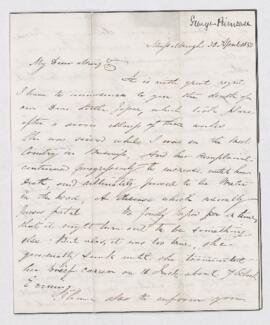 George Primrose
Musselburgh 28 April 185
My Dear
It is with great regret
I have to announce to you the death of
our Dear little which took place
after a severe illness of three weeks
She was seized while I was on the
Country on business, And her complaint
continued progressively to increase, until her
Death, and ultimately proved to be Water
in the head, A disease which usually
proves fatal We fondly hoped for a time,
that it might turn out to be something
else. But alas, it was too true, she
gradually sunk until she terminated
her brief career on about 7 o'clock
Evening
I have also to inform you